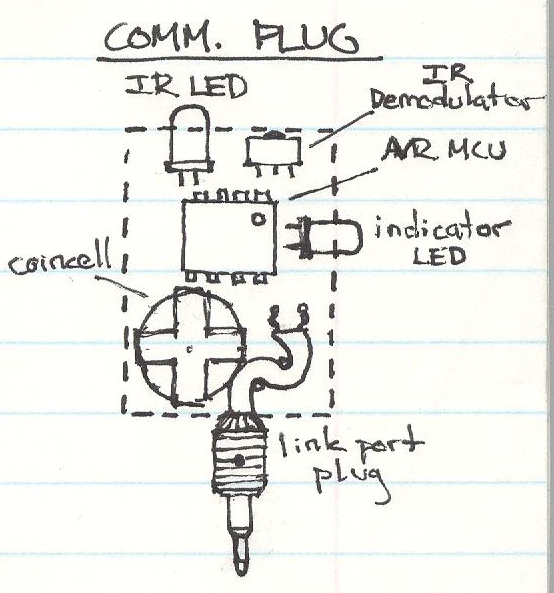 COMM. PLUG
IR LED
IR
Demodulator
AVR MCU
indicator
LED
coincell
link port
plug